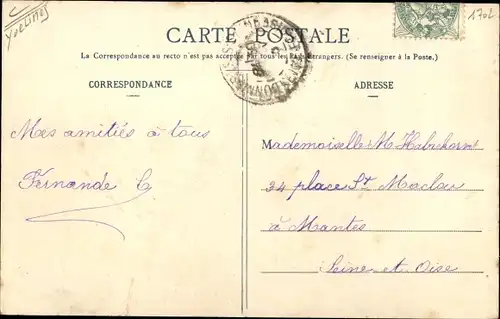 Yvelines
1706
CARTE POSTALE
La Correspondance au recto n'est pas acceptée par tous les pays étrangers. (Se renseigner à la Poste.)
CORRESPONDANCE
ADRESSE
Mes amitiés à tous
Fernande C
Mademoiselle M.
24 place St Maclou
à Mantes
Seine-et-Oise